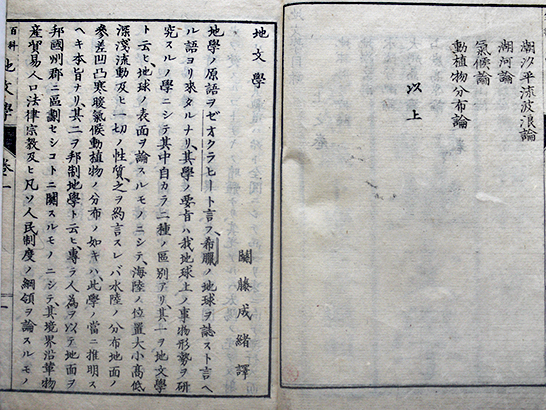 潮汐平流波浪論
湖河論
氣候論
動植物分布論
以上
地文學
關藤成緒譯
地學ノ原語ヲゼオクラヒート言フ希臘ノ地球ヲ誌スト言ヘ
ル語ヨリ來タルナリ其學ノ要旨ハ我地球上ノ事物形勢ヲ研
究スルノ學ニシテ其中自カラ二種ノ區別アリ其一ヲ地文學
ト云ヒ地球ノ表面ヲ論スルモノニシテ海陸ノ位置大小高低
深淺流動及ヒ一切ノ性質之ヲ約言スレバ水陸ノ分布地面ノ
參差凹凸寒暖氣候動植物ノ分布ノ如キハ此學ノ當ニ推明ス
ヘキ本旨ナリ其二ヲ邦制地學ト云ヒ專ラ人為ヲ以テ地面ヲ
邦國州郡ニ區劃セシコトニ關スルモノニシテ其境界沿革物
産貿易人口法律宗教及ヒ凡ソ人民制度ノ綱領ヲ論スルモノ
百科
地文學
卷一